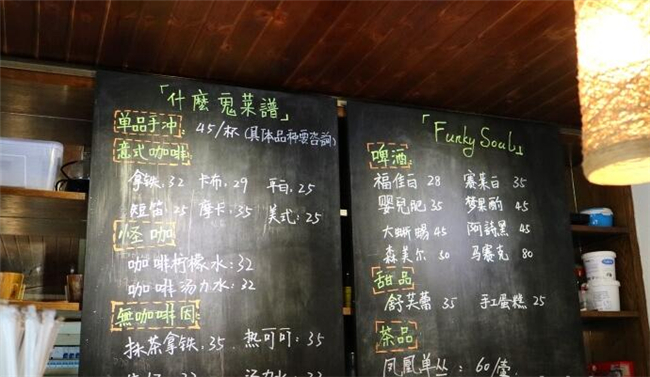 「什麼鬼菜譜」
单品手冲: 45/杯 (具体品种需咨詢)
意式咖啡:
拿鉄. 32 卡布. 29 平白. 25
短笛. 25 摩卡. 35 美式: 25
怪咖
咖啡柠檬水: 32
咖啡汤力水: 32
無咖啡因:
抹茶拿鉄: 35 热可可: 35
「Funky Soul」
啤酒
福佳白 28 賽萊白 35
婴兒肥 35 梦果酌 45
大蜥蜴 45 阿詩黑 45
森美尔 50 马赛克 80
甜品
舒芙蕾 35 手工蛋糕 25
茶品
凤凰单丛: 60/壶